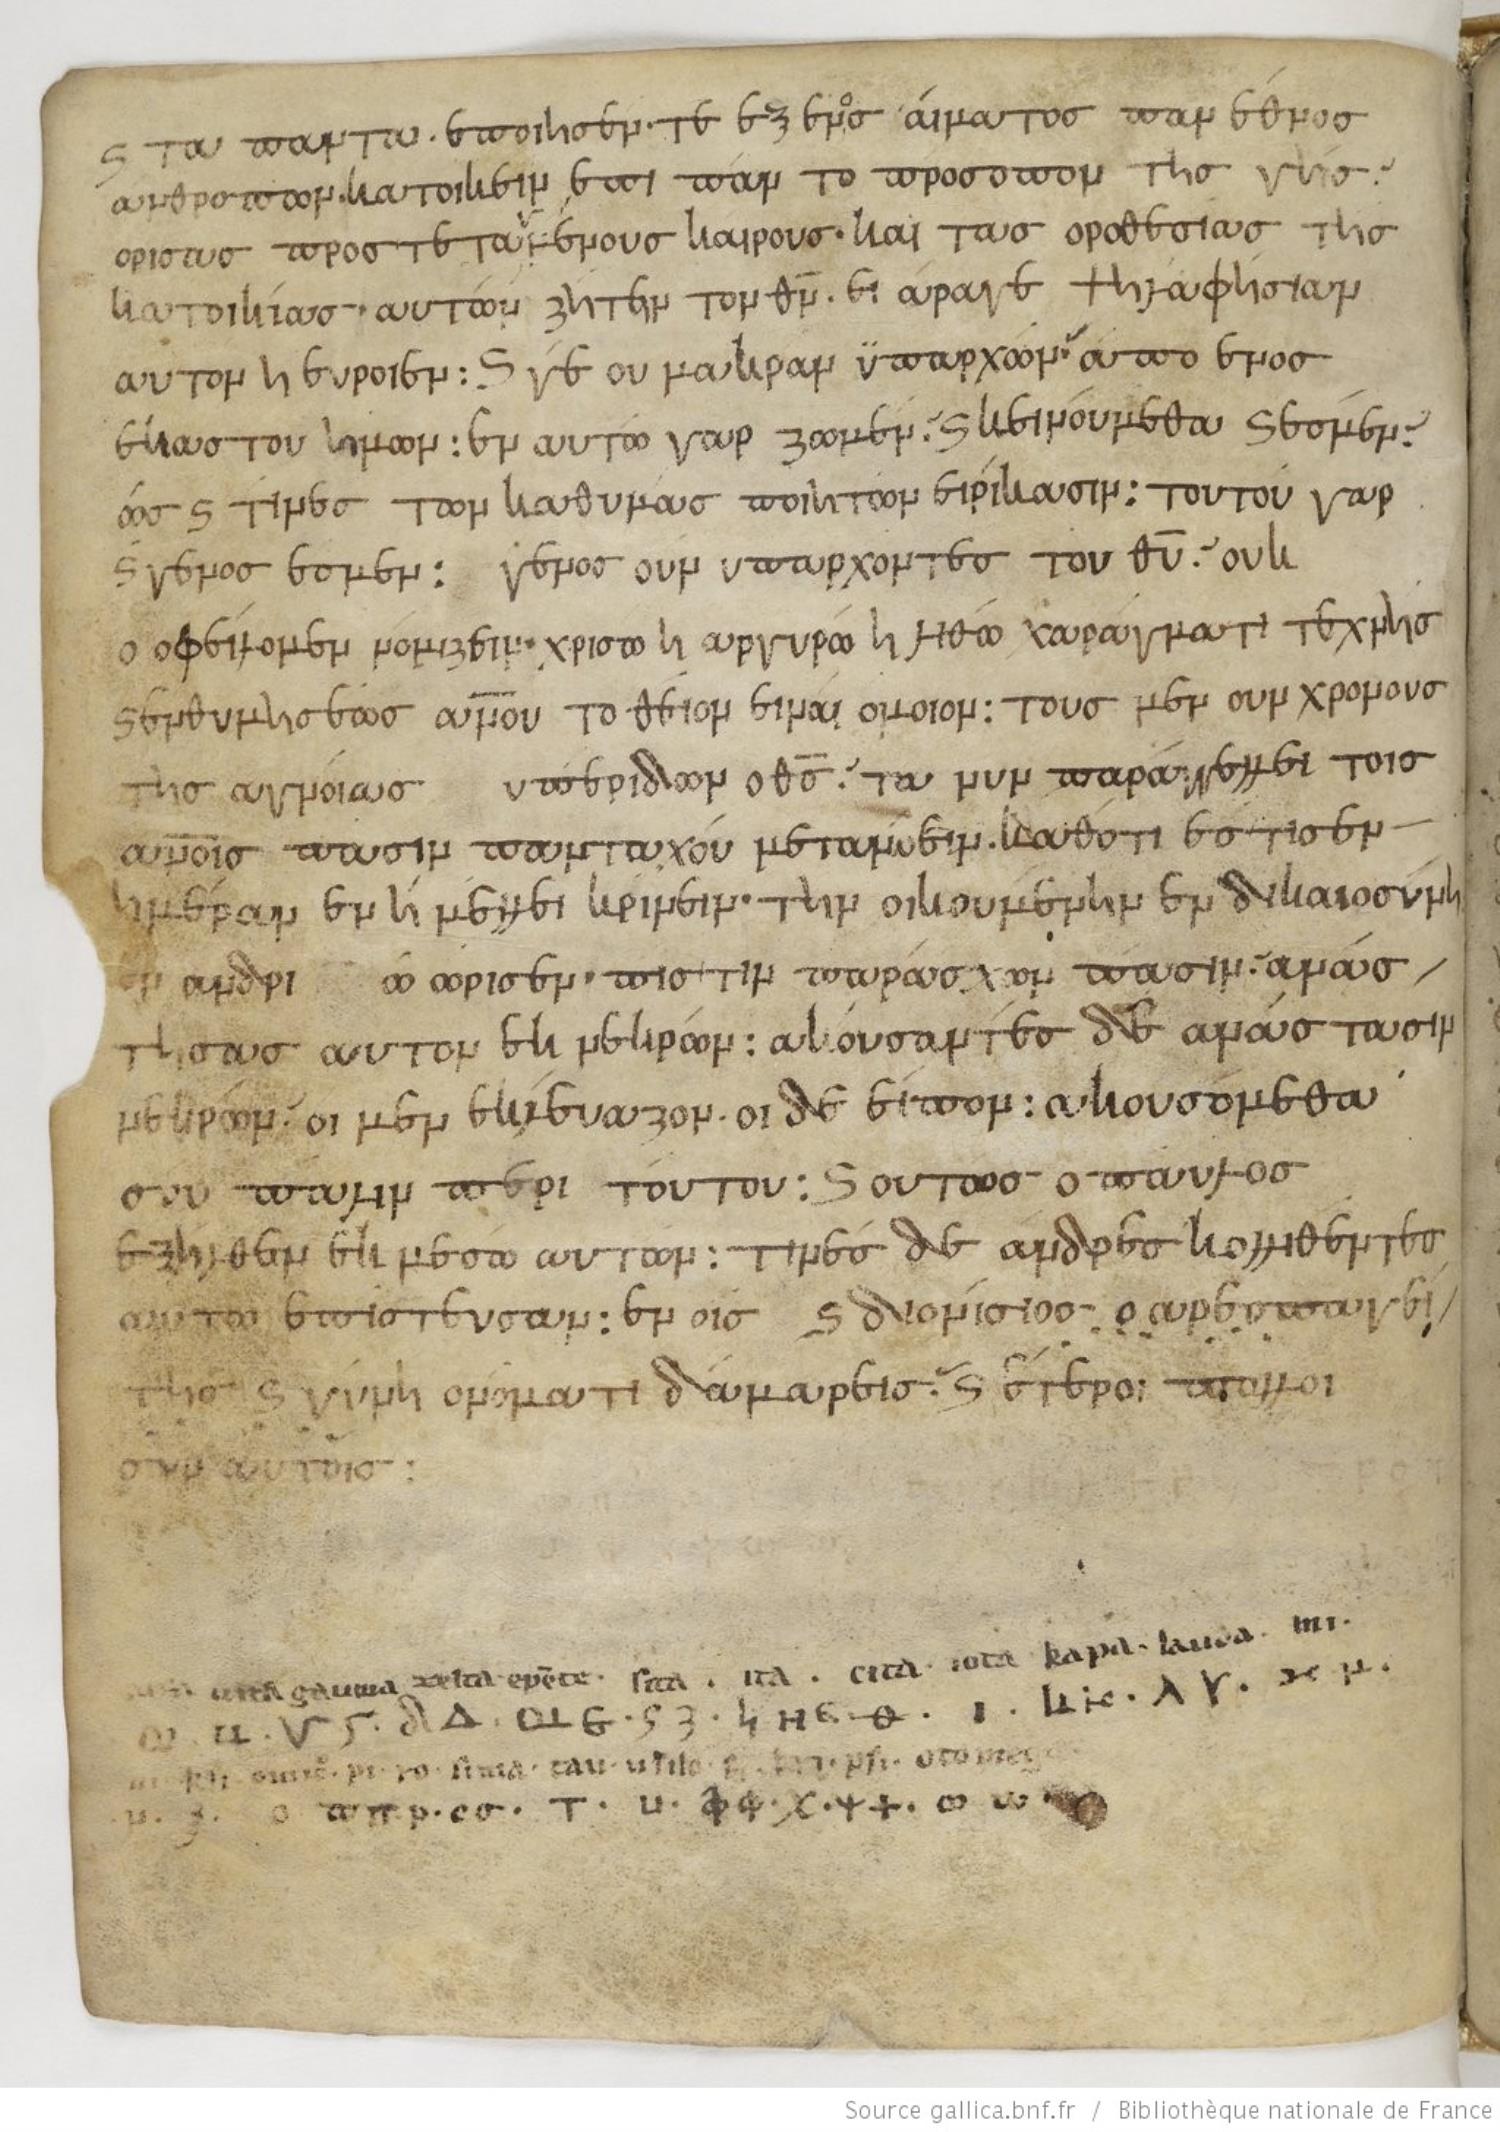 ϛ τα παντα. εποιησεν. τε εξ ενος άιματος παν έθνος
ανθροπων. κατοικειν επι παν το προσοπον της γης:
ορισας προς τεταγμένους καιρους. και τας οροθεσιας της
κατοικίας. αυτών ζητην τον θν̅. ει άραγε ψηλαφησιαν
αυτον η ευροιεν: ϛ γε ου μακραν ϋπαρχων. απο ενος
εκαστου ημων: εν αυτω γαρ ζωμεν: ϛ κεινούμεθα ϛ εσμεν:
ώς ϛ τίνες των καθυμας ποιητων ειρίκασιν: τουτου γαρ
ϛ γενος εσμεν: γενος ουν υπαρχοντες του θυ̅. ουκ
ο οφείλομεν νομιζειν. χρισω η αργυρώ η λιθώ χαράγματι τεχνης
ϛ ενθυμησεώς αν̅ου το θείον ειναι ομοιον: τους μεν ουν χρονους
της αγνοιας υπεριδων ο θσ̅. τα νυν παραγγελλει τοις
αν̅οις πασιν πανταχου μετανοειν. καθότι εστισεν
ημέραν εν η μελλει κρίνειν. την οικουμένην εν δικαιοσύνη
εν ανδρι ώ ώρισεν. πιστιν παράσχων πασιν. ανάς /
τησας αυτον εκ νεκρών: ακούσαντές δε ανάς τασιν
νεκρών. οι μεν εκλευαζον. οι δε είπον: ακουσόμεθα
σου παλιν περι τόυτου: ϛ ουτως ο παυλος
εξηλθεν εκ μεσω αυτων: τινές δε άνδρες κολλιθέντες
αυτω επίστευσαν: εν οις ϛ διονίσιος ο αρεοπαγεί/
της ϛ γυνη ονόματι δάμαρεις. ϛ έτεροι πολλοι
συν αυτοις:
uita gauma delta epēte. sita. ita. cita iota kapa. lauda. mi.
δ Δ. ϛ ζ. h H θ. ι. κ. λ. μ.
pi. ro. sima. tau. psi. oto meg
ο π ρ. σ. τ. υ. φ. χ. ψ. ω